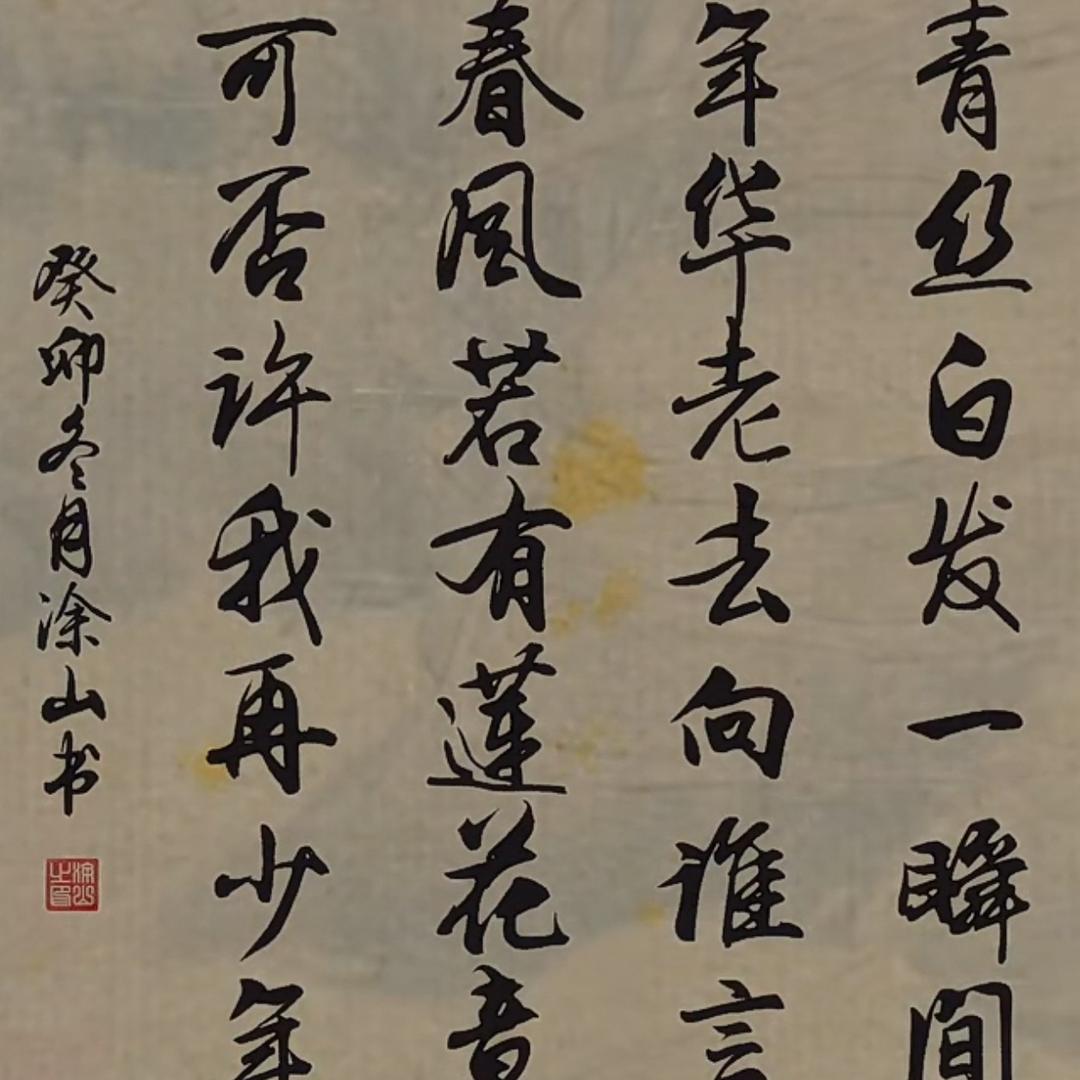 青丝白发一瞬间
年华老去向谁言
春风若有蓮花意
可否许我再少年
癸卯冬月涂山书
涂山之印